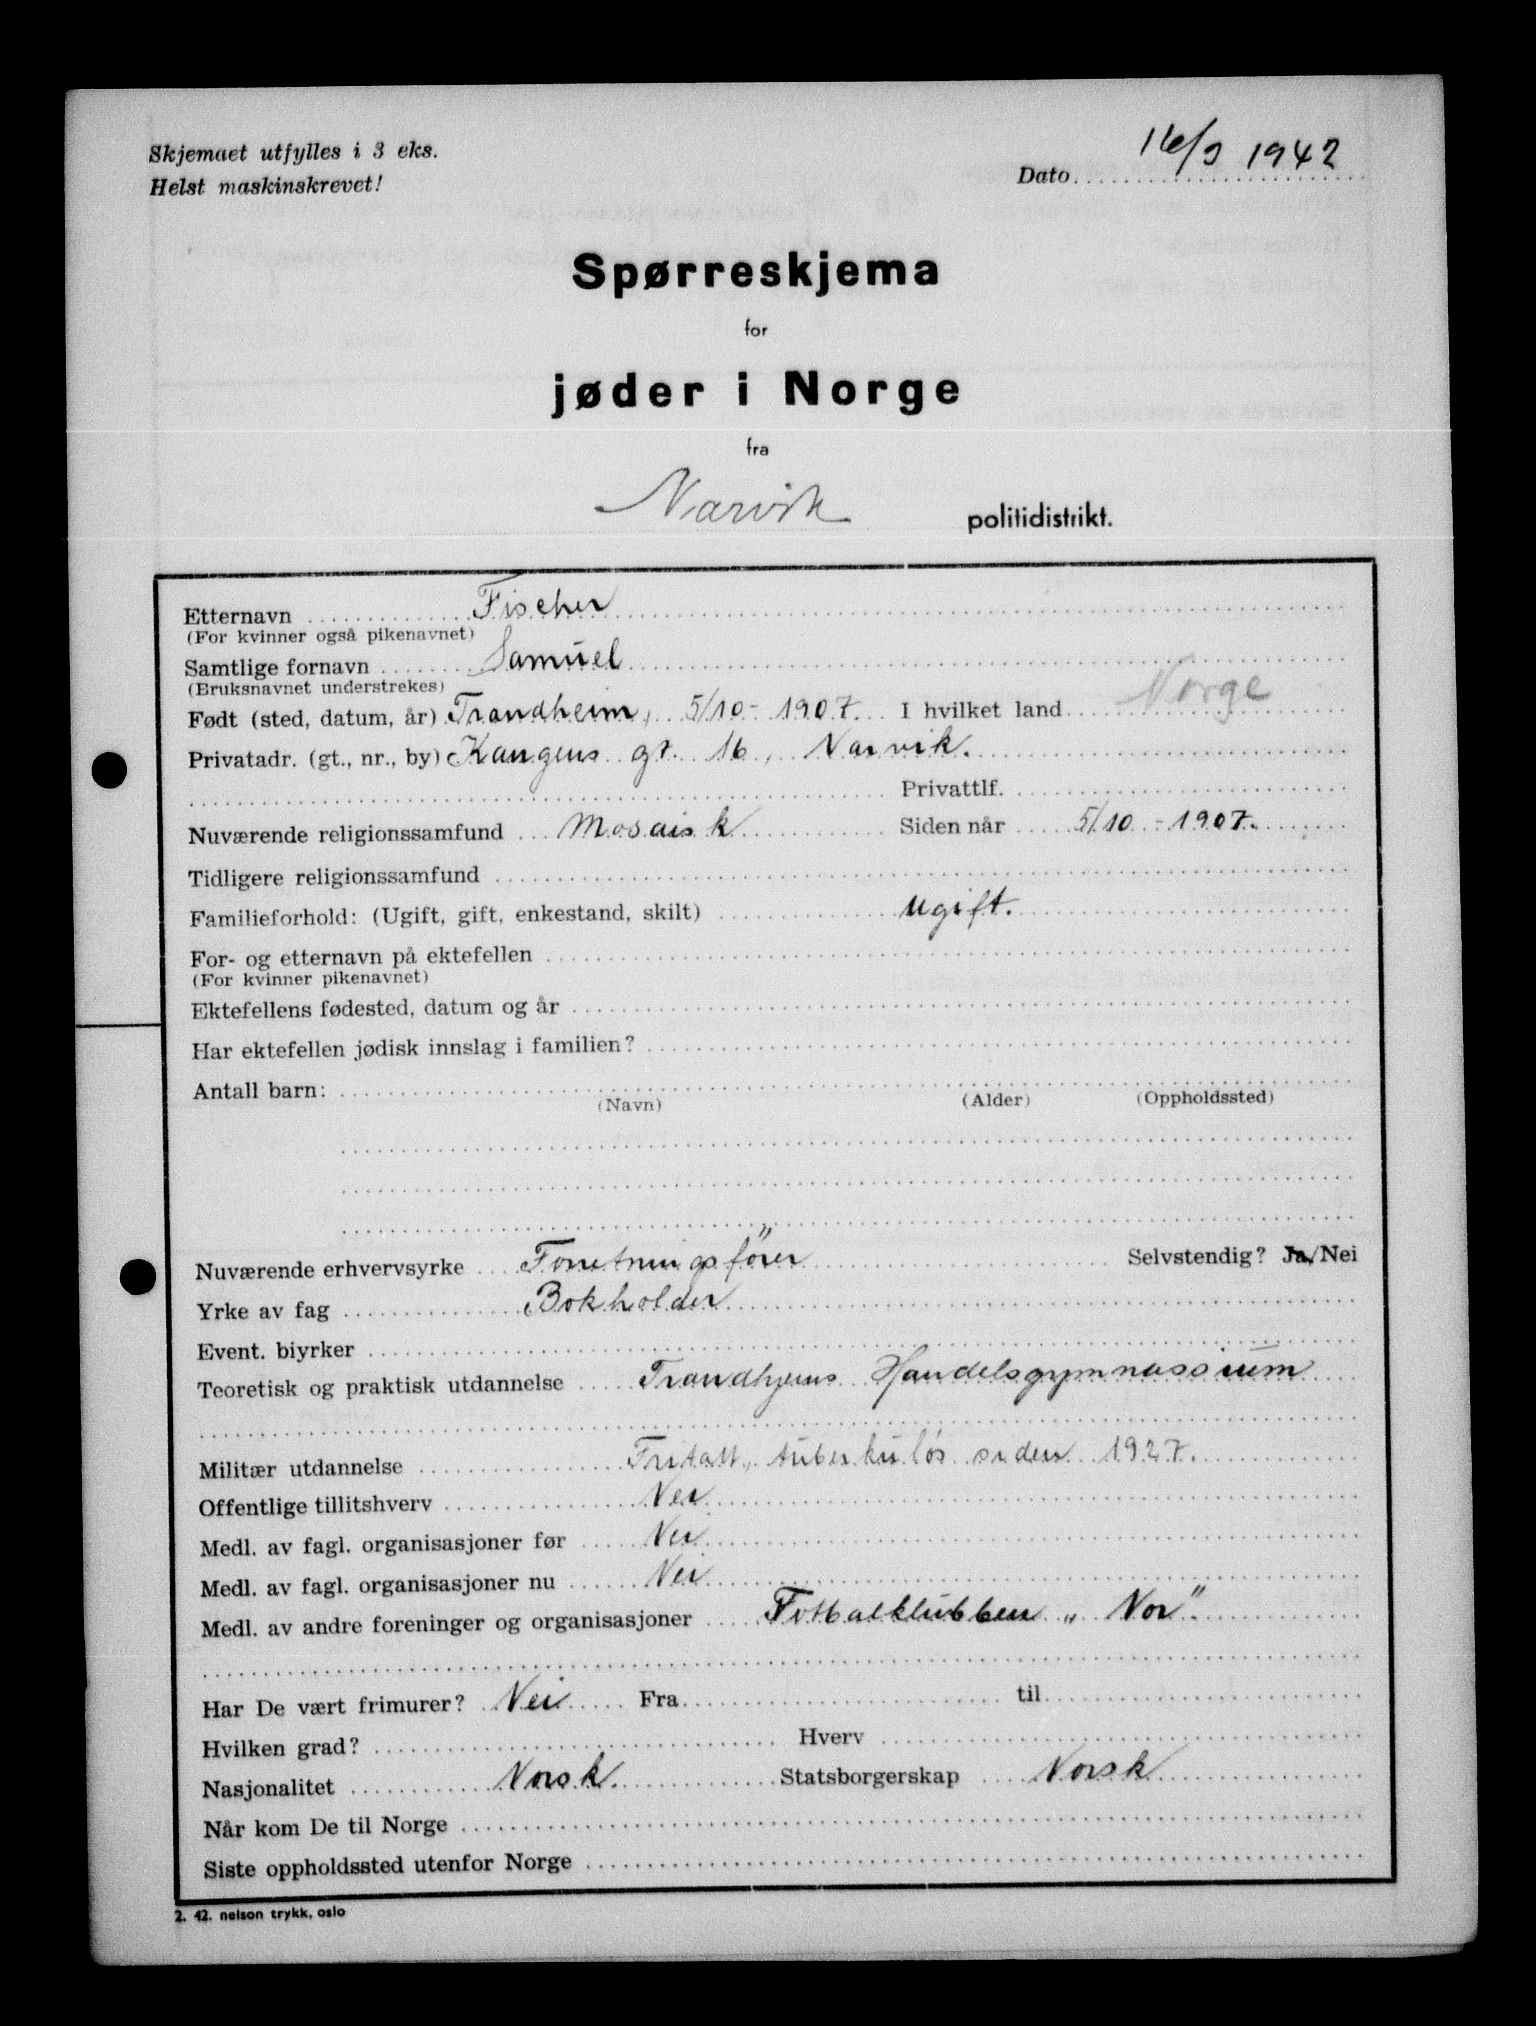 Skjemaet utfylles i 3 eks.
Helst maskinskrevet!
Dato 16/3 1942
Spørreskjema
for
jøder i Norge
fra
Narvik politidistrikt.
Etternavn Fischer
(For kvinner også pikenavnet)
Samtlige fornavn Samuel
(Bruksnavnet understrekes)
Født (sted, datum, år) Trondheim, 5/10 - 1907. I hvilket land Norge
Privatadr. (gt., nr., by) Kongens gt. 16, Narvik.
Privattlf.
Nuværende religionssamfund Mosaisk Siden når 5/10 - 1907.
Tidligere religionssamfund
Familieforhold: (Ugift, gift, enkestand, skilt) Ugift.
For- og etternavn på ektefellen
(For kvinner pikenavnet)
Ektefellens fødested, datum og år
Har ektefellen jødisk innslag i familien?
Antall barn:
(Navn) (Alder) (Oppholdssted)
Nuværende erhvervsyrke Forretningsfører Selvstendig? Ja/Nei
Yrke av fag Bokholder
Event. biyrker
Teoretisk og praktisk utdannelse Trondhjems Handelsgymnassium
Militær utdannelse Fritatt, tuberkuløs siden 1927.
Offentlige tillitshverv Nei
Medl. av fagl. organisasjoner før Nei
Medl. av fagl. organisasjoner nu Nei
Medl. av andre foreninger og organisasjoner Fotballklubben „Nor".
Har De vært frimurer? Nei Fra til
Hvilken grad? Hverv
Nasjonalitet Norsk. Statsborgerskap Norsk
Når kom De til Norge
Siste oppholdssted utenfor Norge
2. 42. nelson trykk, oslo